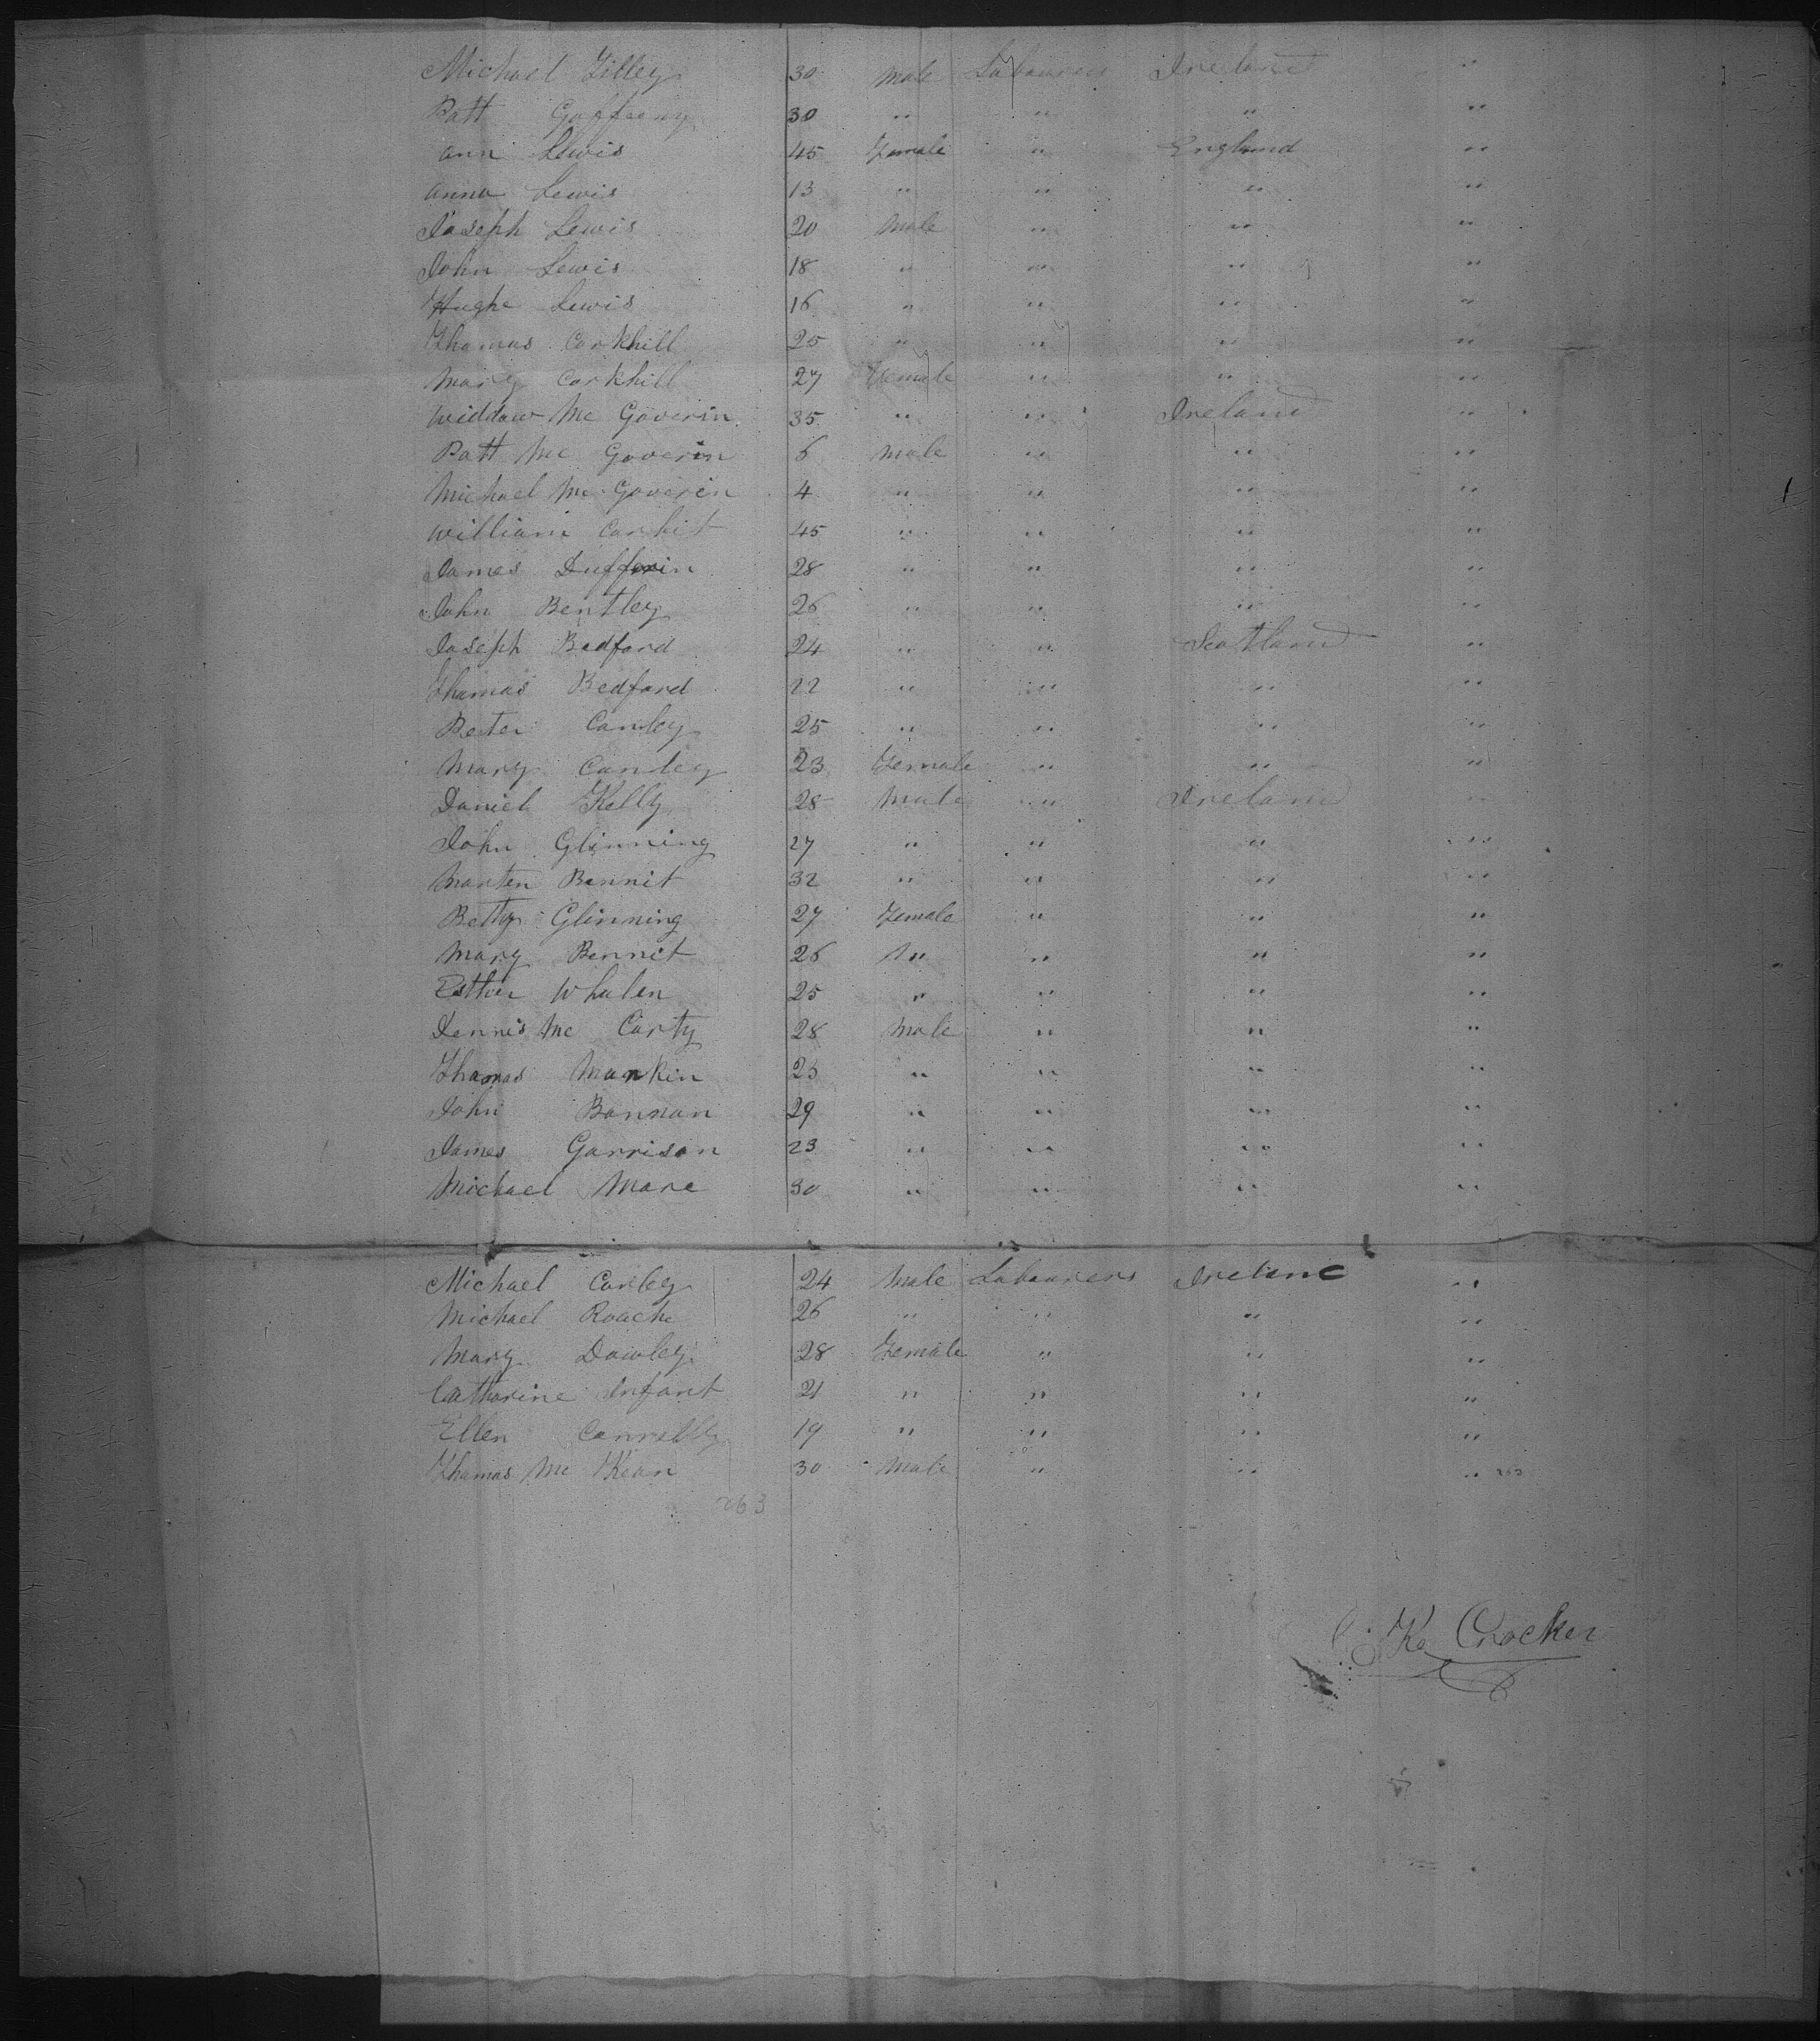 Michael Tilley 30 Male Labourers Ireland "
Patt Gaffreny 30 " " " "
Ann Lewis 45 Female " England "
Anna Lewis 13 " " " "
Joseph Lewis 20 Male " " "
John Lewis 18 " " " "
Hughe Lewis 16 " " " "
Thomas Corkhill 25 " " " "
Mary Corkhill 27 Female " " "
Widdow Mc Goverin 35 " " Ireland "
Patt Mc Goverin 6 Male " " "
Michael Mc Goverin 4 " " " "
William Corbit 45 " " " "
James Dufferin 28 " " " "
John Bentley 26 " " " "
Joseph Bedford 24 " " Scotland "
Thomas Bedford 22 " " " "
Peter Conley 25 " " " "
Mary Conley 23 Female " " "
Daniel Kelly 28 Male " Ireland "
John Glinning 27 " " " "
Marten Bennit 32 " " " "
Betty Glinning 27 Female " " "
Mary Bennit 26 " " " "
Esther Whalen 25 " " " "
Dennis Mc Carty 28 Male " " "
Thomas Mankin 25 " " " "
John Bannan 29 " " " "
James Garrison 23 " " " "
Michael Mare 30 " " " "
Michael Conley 24 Male Labourers Ireland "
Michael Roache 26 " " " "
Mary Dowley 28 Female " " "
Catharine Infant 21 " " " "
Ellen Connelly 19 " " " "
Thomas Mc Kean 30 Male " " " 263
263
Crocker